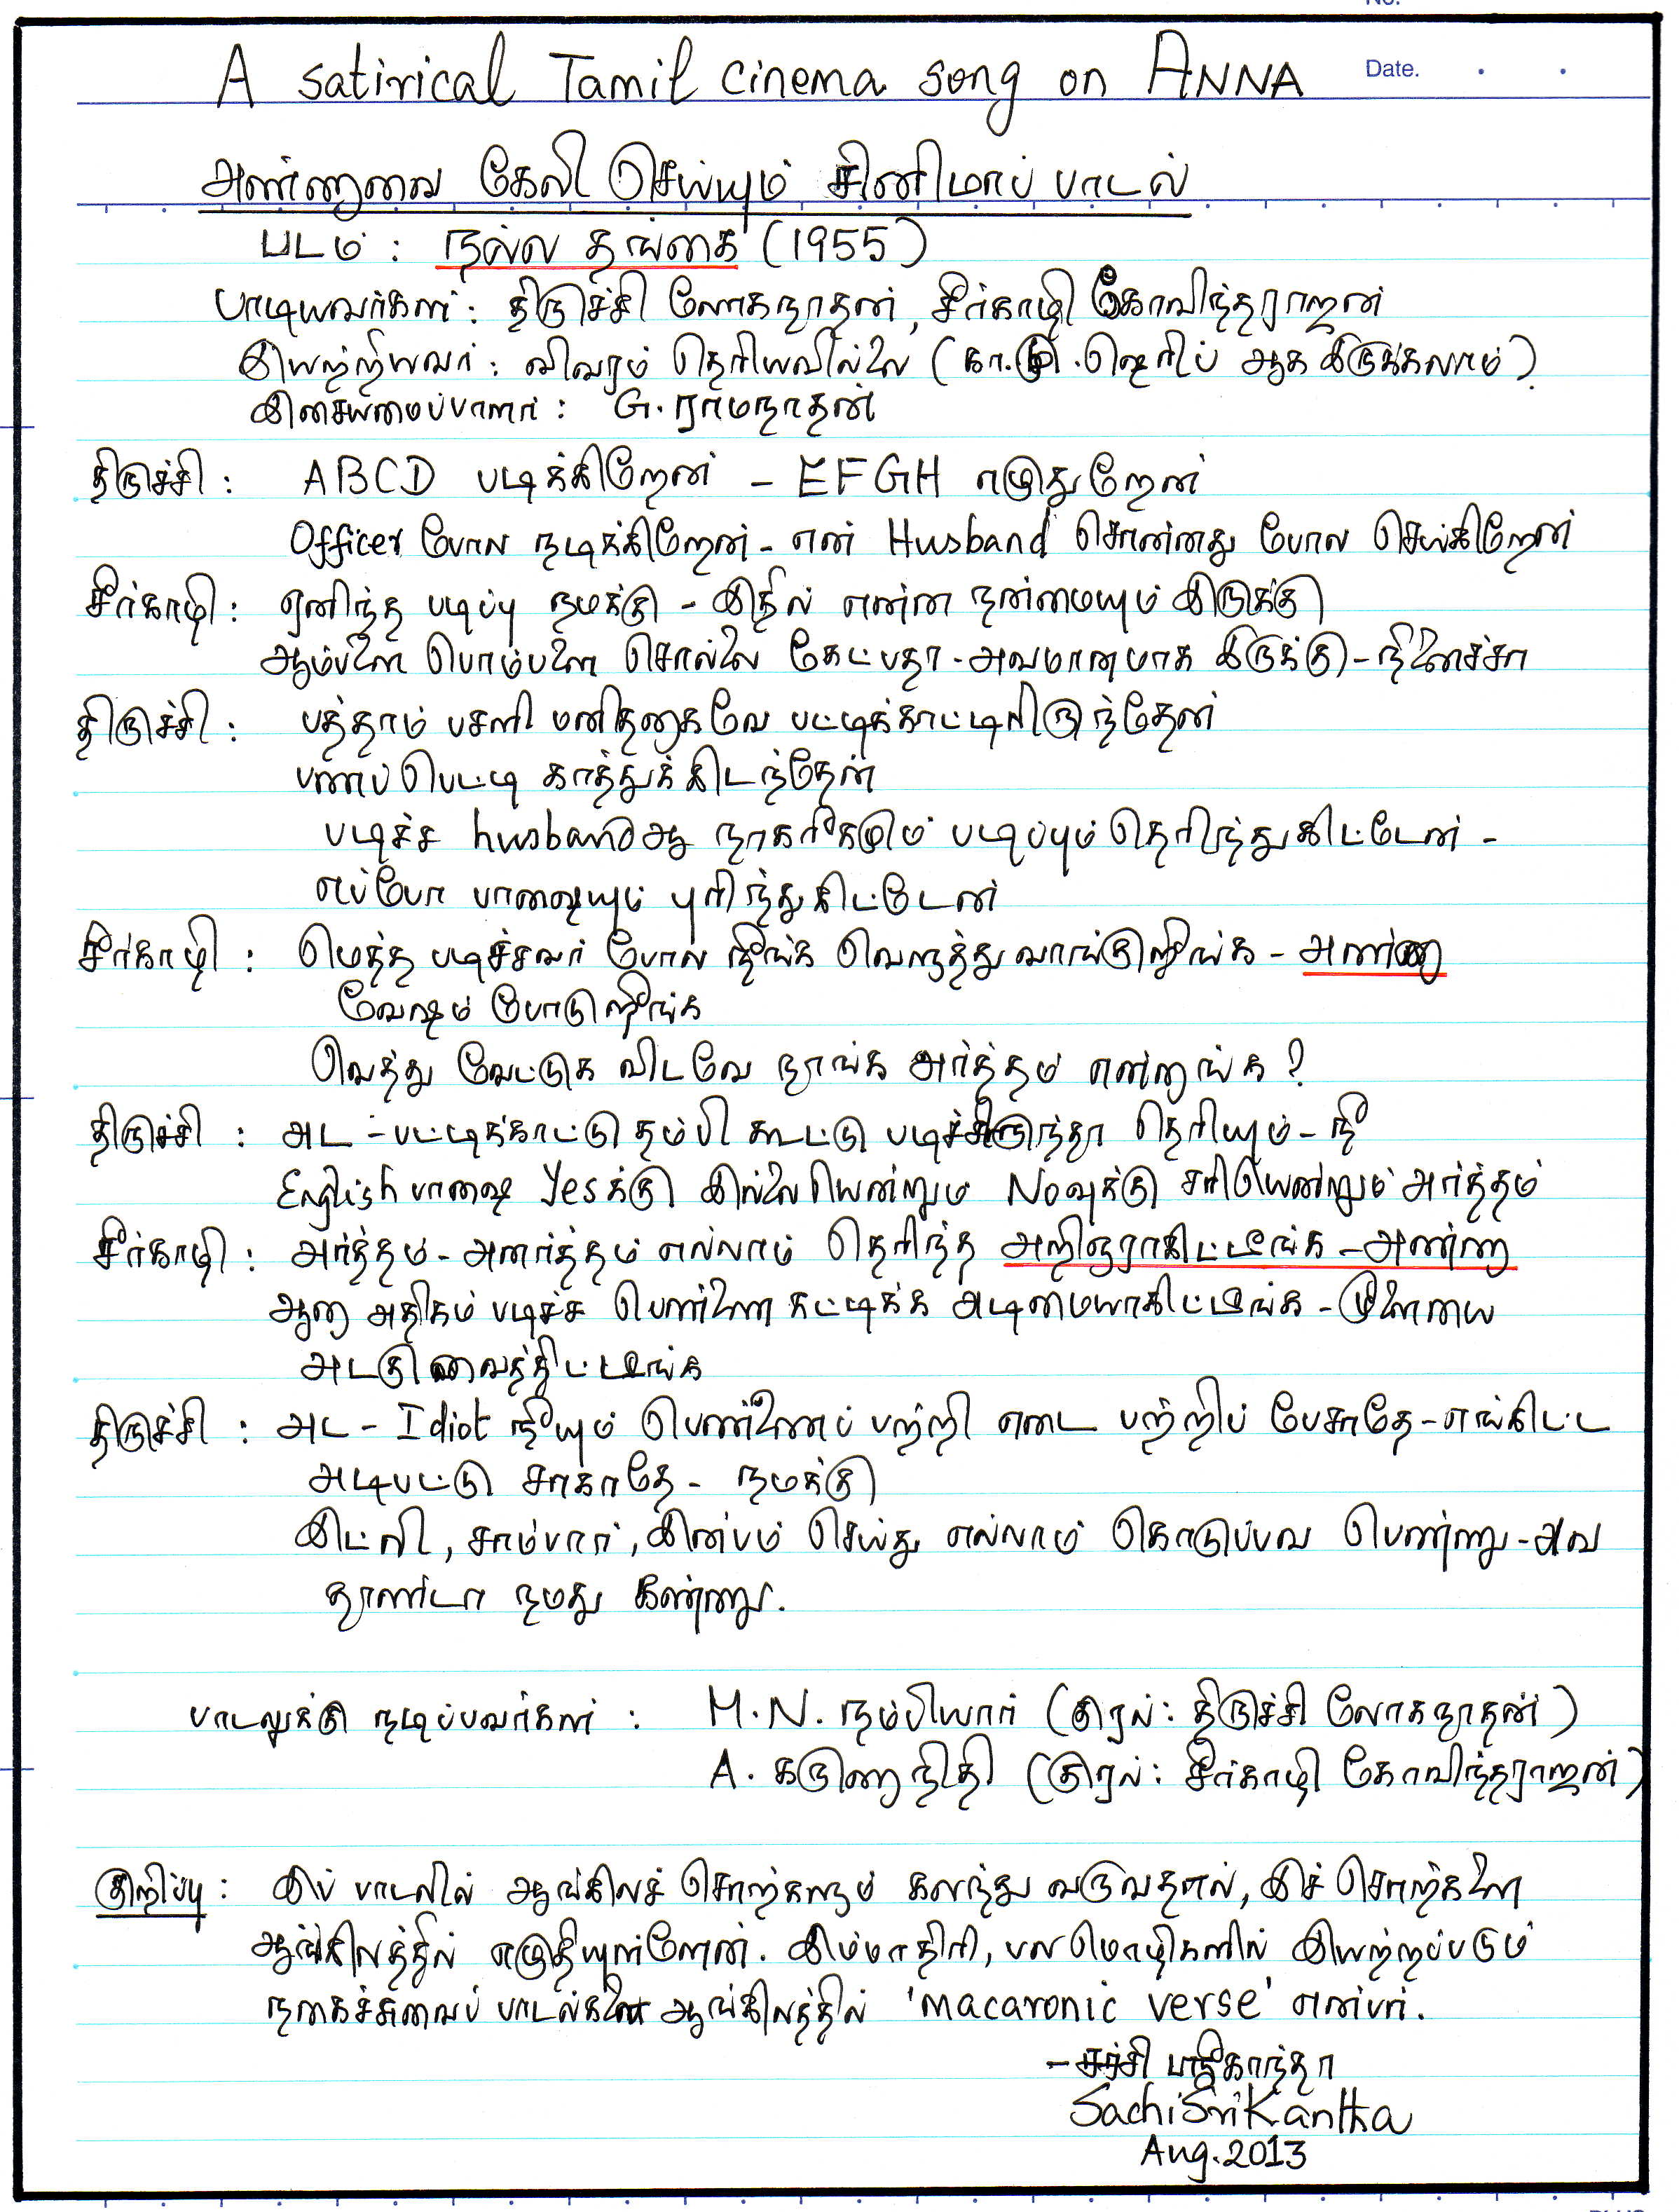 No.
Date.
A satirical Tamil cinema song on ANNA
அண்ணாவை கேலி செய்யும் சினிமாப் பாடல்
படம் : நல்ல தங்கை (1955)
பாடியவர்கள் : திருச்சி லோகநாதன், சீர்காழி கோவிந்தராஜன்
இயற்றியவர் : விவரம் தெரியவில்லை (கா.மு.ஷெரிப் ஆக இருக்கலாம்)
இசையமைப்பாளர் : G. ராமநாதன்
திருச்சி : ABCD படிக்கிறேன் - EFGH எழுதுறேன்
Officer போல நடிக்கிறேன் - என் Husband சொன்னது போல செய்கிறேன்
சீர்காழி : ஏனிந்த படிப்பு நமக்கு - இதில் என்ன நன்மையும் இருக்கு
ஆம்பளை பொம்பளை சொல்லை கேட்பதா - அவமானமாக இருக்கு - நினைச்சா
திருச்சி : பத்தாம் பசளி மனிதனாகவே பட்டிக்காட்டிலிருந்தேன்
பணப் பெட்டி காத்துக் கிடந்தேன்
படிச்ச husband ஆ நாகரிகமும் படிப்பும் தெரிந்துகிட்டேன் -
எப்போ பாஷையும் புரிந்துகிட்டேன்
சீர்காழி : மெத்த படிச்சவர் போல நீங்க வெளுத்து வாங்குறீங்க - அண்ணா
வேஷம் போடுறீங்க
வெத்து வேட்டுக விடவே நாங்க அர்த்தம் என்னாங்க?
திருச்சி : அட - பட்டிக்காட்டு தம்பி கூட்டு படிச்சிருந்தா தெரியும் - நீ
English பாஷை Yesக்கு இல்லையென்றும் Noவுக்கு சரியென்றும் அர்த்தம்
சீர்காழி : அர்த்தம் - அனர்த்தம் எல்லாம் தெரிந்த அறிஞராகிட்டீங்க - அண்ணா
ஆனா அதிகம் படிச்ச பெண்ணை கட்டிக்க அடிமையாகிட்டீங்க - மூளையை
அடகு வைத்திட்டீங்க
திருச்சி : அட - Idiot நீயும் பெண்ணைப் பற்றி எடை பற்றிப் பேசாதே - எங்கிட்ட
அடிபட்டு சாகாதே - நமக்கு
இட்லி, சாம்பார், இன்பம் செய்து எல்லாம் கொடுப்பவ பெண்ணு - அவ
தாண்டா நமது கண்ணு.
பாடலுக்கு நடிப்பவர்கள் : M.N. நம்பியார் (குரல் : திருச்சி லோகநாதன்)
A. கருணாநிதி (குரல் : சீர்காழி கோவிந்தராஜன்)
குறிப்பு : இப் பாடலில் ஆங்கிலச் சொற்களும் கலந்து வருவதால், இச் சொற்களை
ஆங்கிலத்தில் எழுதியுள்ளேன். இம்மாதிரி, பல மொழிகளில் இயற்றப்படும்
நகைச்சுவைப் பாடல்களை ஆங்கிலத்தில் 'macaronic verse' என்பர்.
- சச்சி ஸ்ரீகாந்தா
Sachi Sri Kantha
Aug. 2013